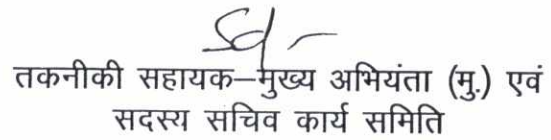 Sd/-
तकनीकी सहायक–मुख्य अभियंता (मु.) एवं
सदस्य सचिव कार्य समिति